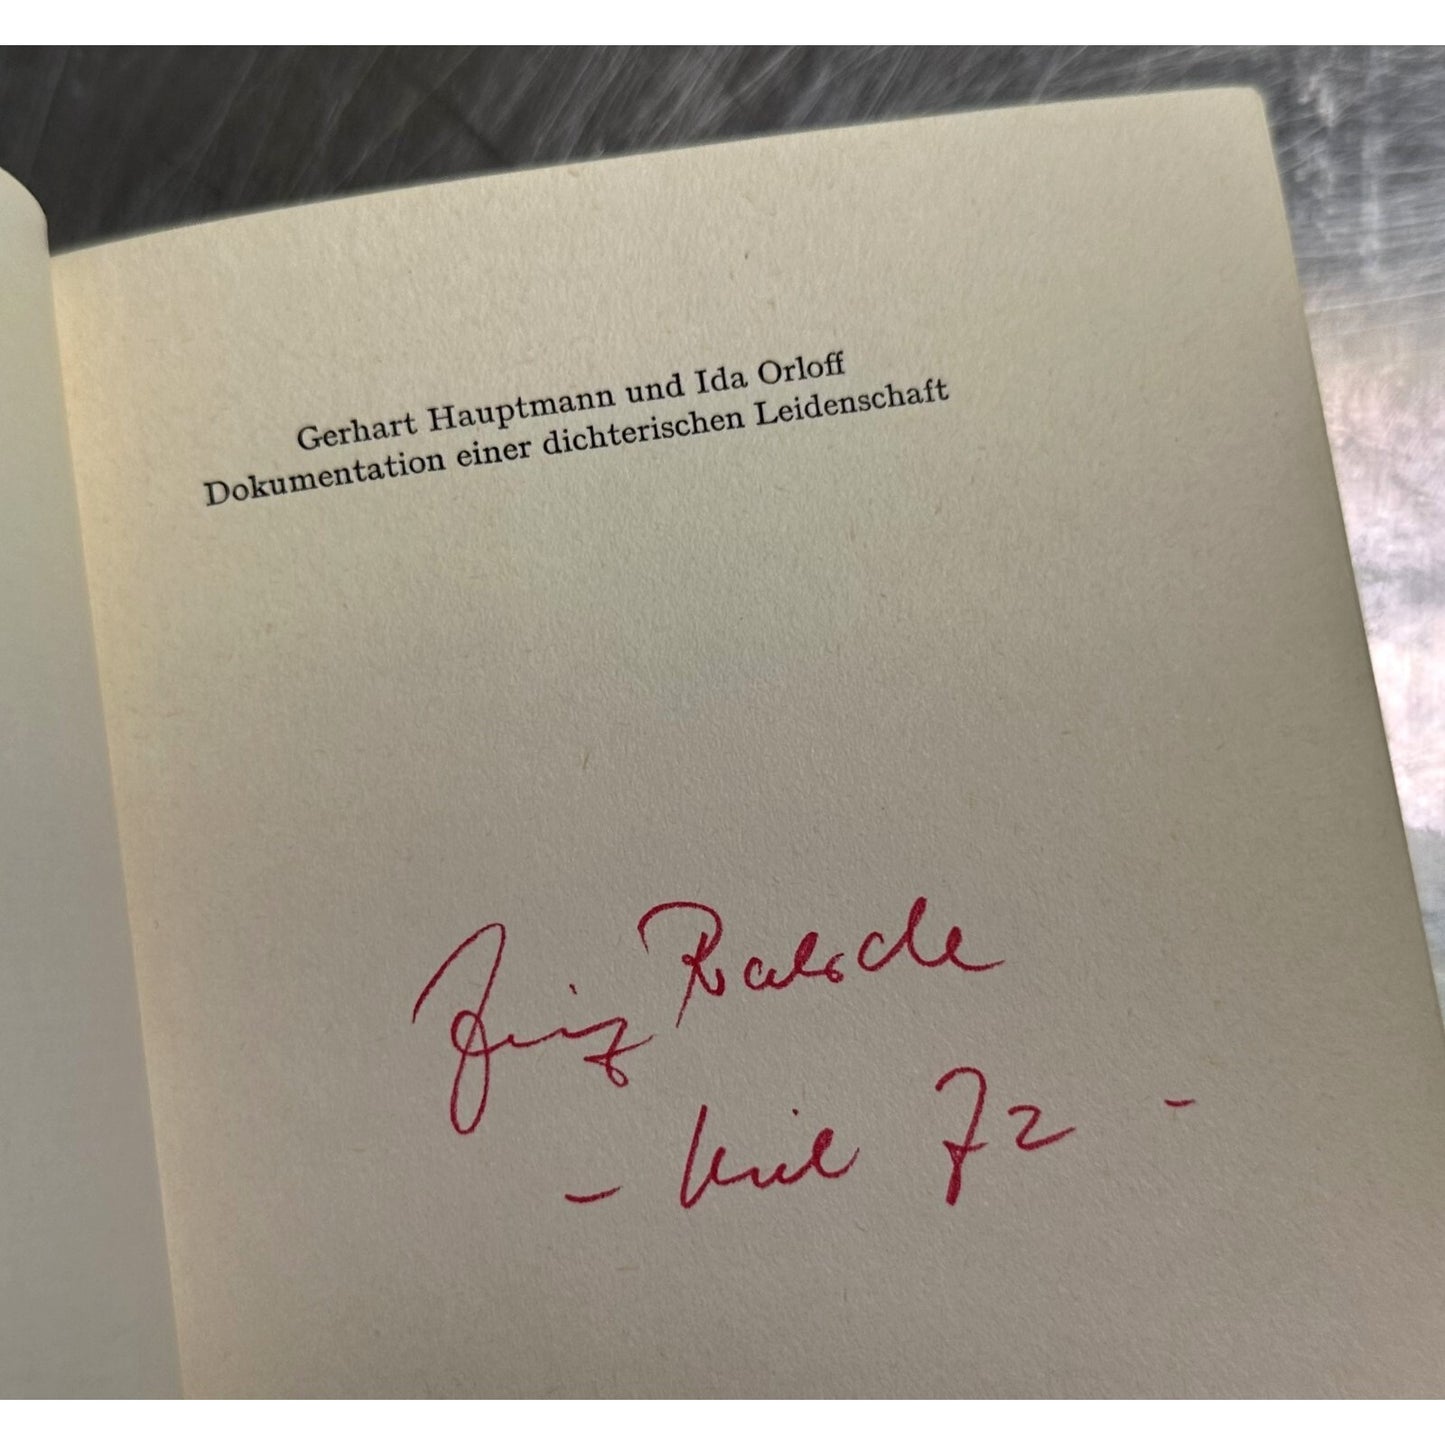 Gerhart Hauptmann und Ida Orloff
Dokumentation einer dichterischen Leidenschaft
- Kiel 72 -